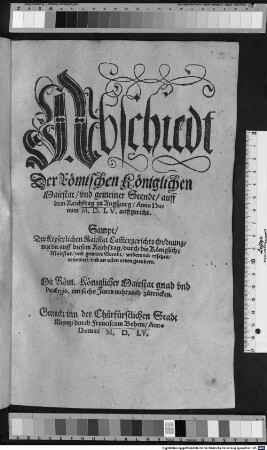 Abschiedt
Der Römischen Königlichen
Maiestat / vnd gemeiner Stende / auff
dem Reichstag zu Augspurg / Anno Do-
mini M. D. LV. auffgericht.
Sampt /
Der Keyserlichen Maiestat Cammergerichts Ordnung /
wie die auff diesem Reichstag / durch die Königliche
Maiestat / vnd gemeine Stende / widerumb ersehen /
ernewert / vnd an vilen orten geendert.
Mit Röm. Königlicher Maiestat gnad vnd
Priuilegio, inn sechs Jaren nicht nach zůtrucken.
Getruckt inn der Churfürstlichen Stadt
Meyntz / durch Franciscum Behem / Anno
Domini M. D. LV.